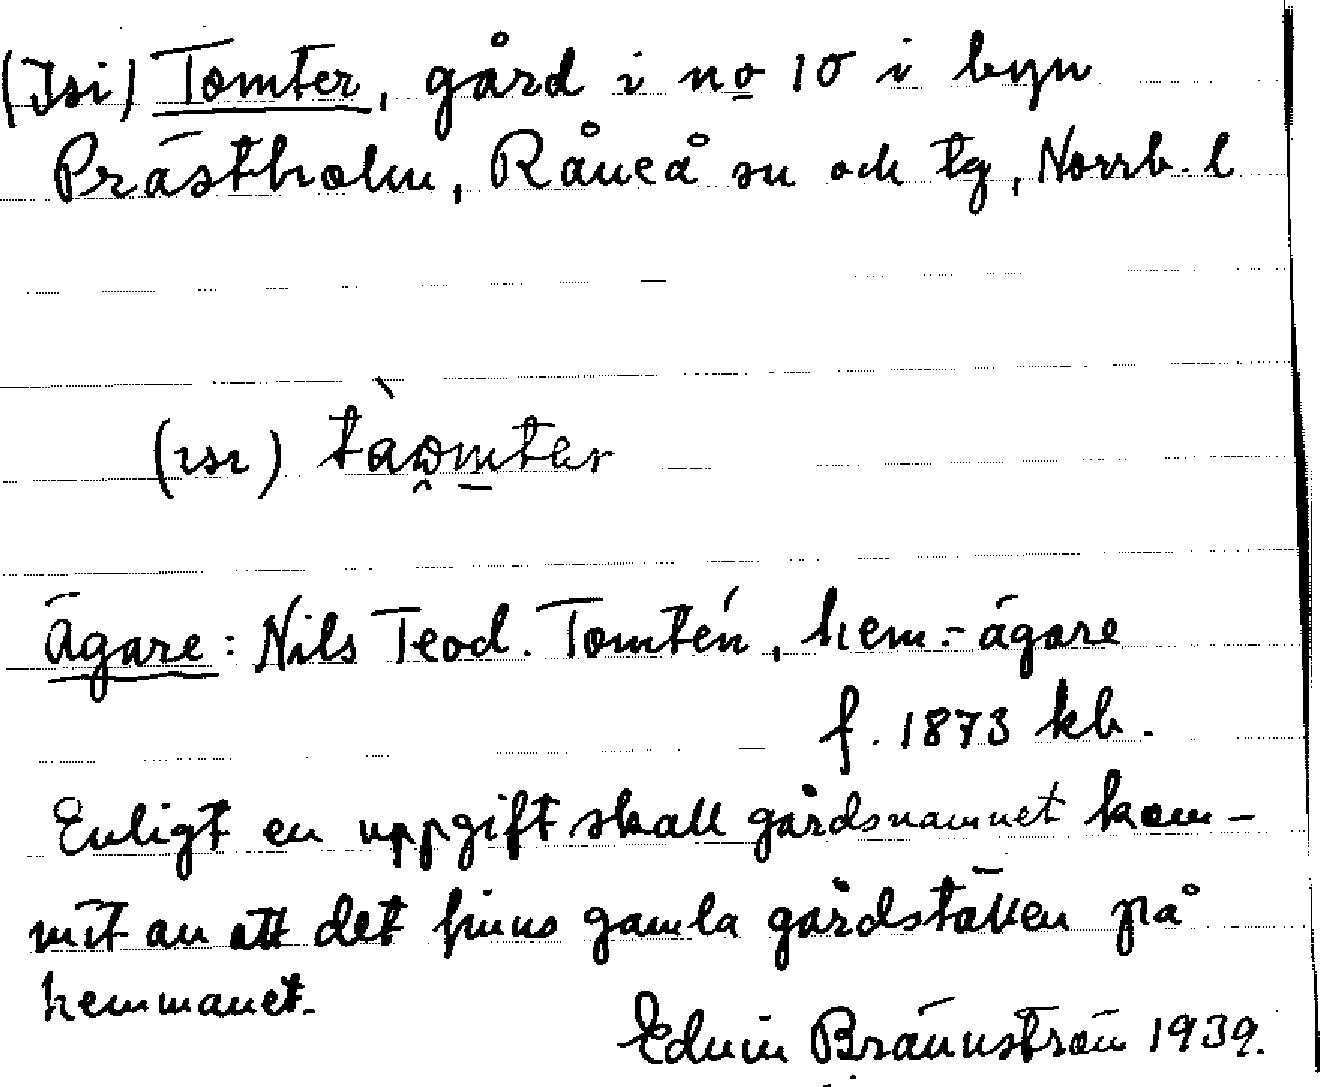 (Isi) Tomter, gård i no 10 i byn
Prästholm, Råneå sn och tg, Norrb. l
(ɪsɪ)
Ägare: Nils Teod. Tomtén, hem.-ägare
f. 1873 kb.
Enligt en uppgift skall gårdsnamnet kom-
mit av att det finns gamla gårdställen på
hemmanet.
Edvin Brännström 1939.